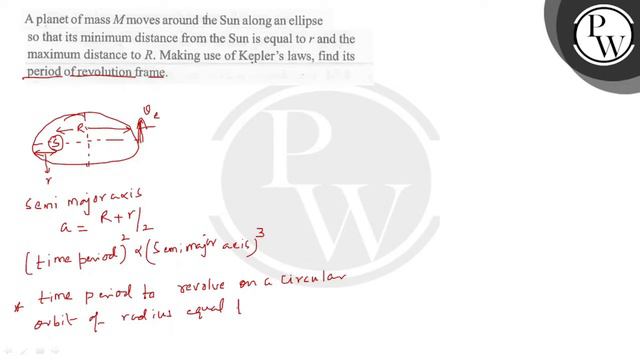 A planet of mass M moves around the Sun along an ellipse
so that its minimum distance from the Sun is equal to r and the
maximum distance to R. Making use of Kepler's laws, find its
period of revolution frame.
PW
R
S
r
semi major axis
a = R + r / 2
(time period)² ∝ (semi major axis)³
* time period to revolve on a circular
orbit of radius equal t